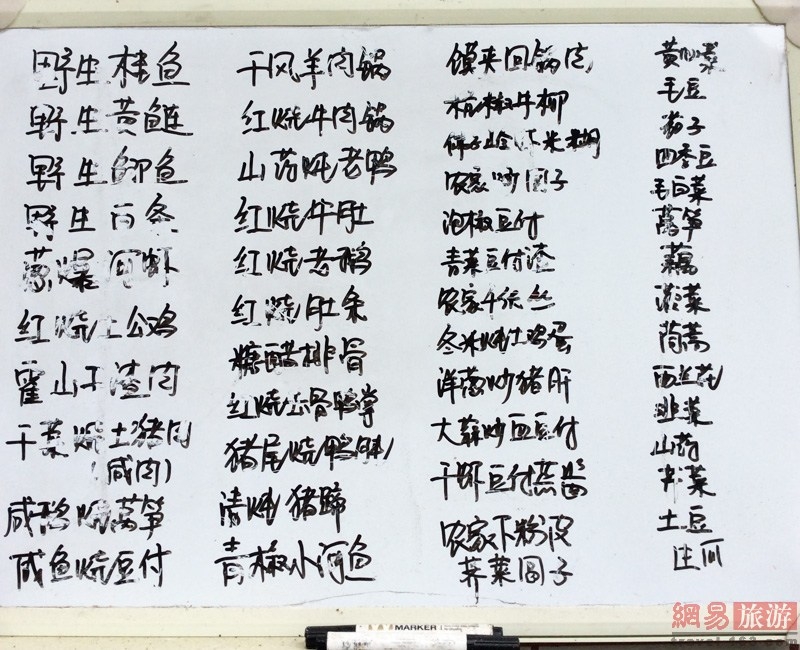 野生桂鱼
野生黄鲢
野生鲫鱼
野生白条
葱爆河虾
红烧土公鸡
霍山干渣肉
干菜烧土猪肉
(咸肉)
咸鸡烧莴笋
咸鱼烧豆付
干风羊肉锅
红烧牛肉锅
山药炖老鸭
红烧牛肚
红烧老鹅
红烧肚条
糖醋排骨
红烧去骨鸭掌
猪尾烧鸭
清炖猪蹄
青椒小河鱼
馍夹回锅肉
杭椒牛柳
米糊
农家炒圆子
泡椒豆付
青菜豆付渣
农家千张丝
土鸡蛋
洋葱炒猪肝
大蒜炒血豆付
干虾豆付蒸
农家下粉皮
荠菜圆子
黄心菜
毛豆
茄子
四季豆
毛白菜
莴笋
藕
菠菜
茼蒿
西兰花
韭菜
山药
芹菜
土豆
MARKER
網易旅游
travel.163.com